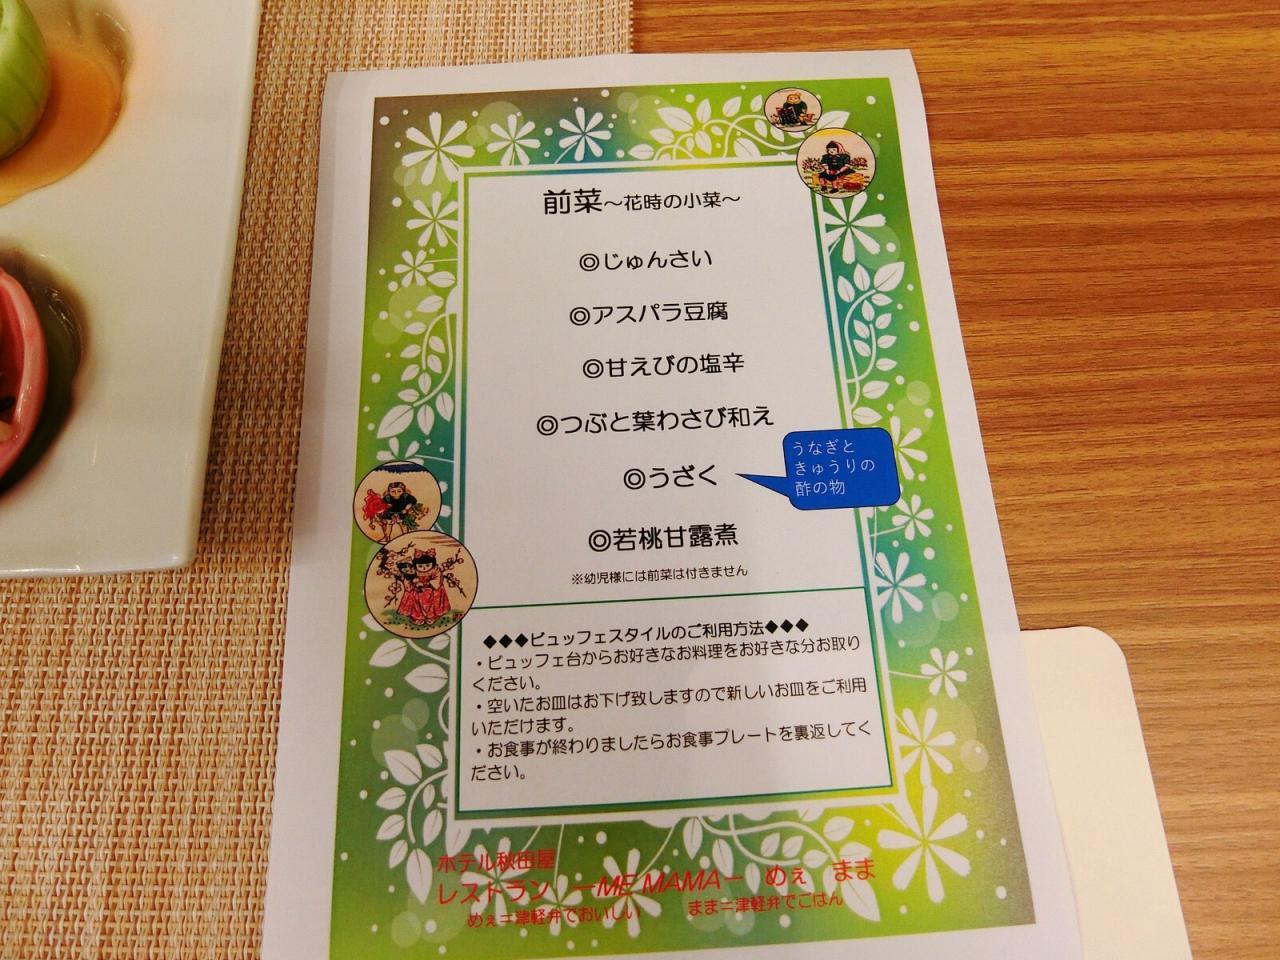 前菜～花時の小菜～
◎じゅんさい
◎アスパラ豆腐
◎甘えびの塩辛
◎つぶと葉わさび和え
◎うざく
うなぎと
きゅうりの
酢の物
◎若桃甘露煮
※幼児様には前菜は付きません
◆◆◆ビュッフェスタイルのご利用方法◆◆◆
・ビュッフェ台からお好きなお料理をお好きな分お取り
ください。
・空いたお皿はお下げ致しますので新しいお皿をご利用
いただけます。
・お食事が終わりましたらお食事プレートを裏返してく
ださい。
ホテル秋田屋
レストラン －ME MAMA－ めぇ まま
めぇ＝津軽弁でおいしい まま＝津軽弁でごはん